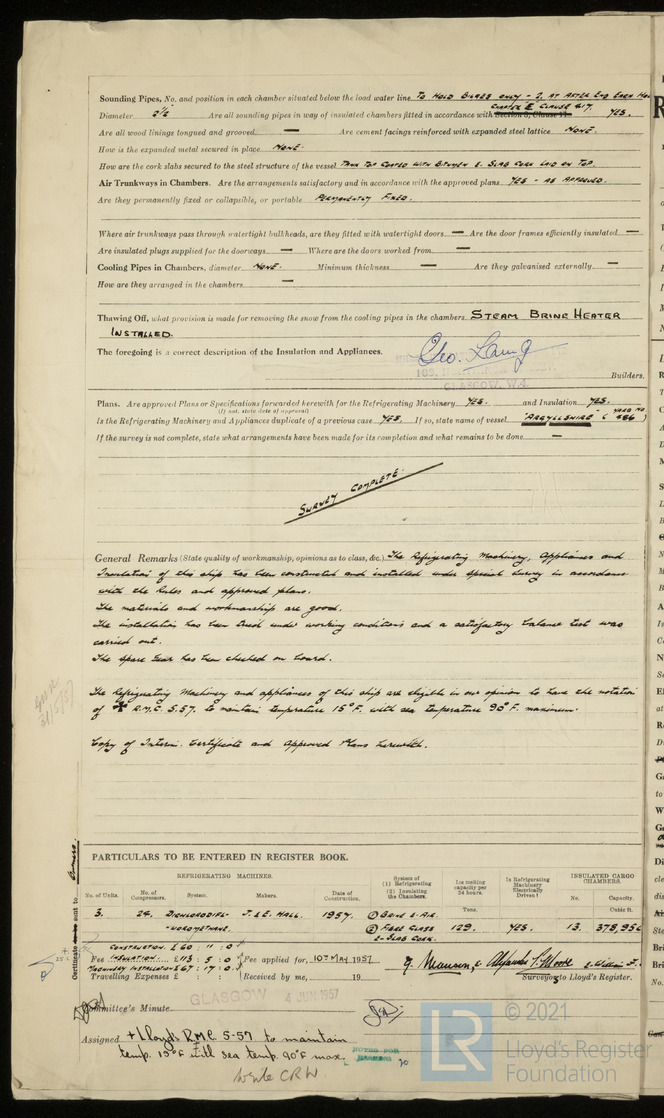 Sounding Pipes, No. and position in each chamber situated below the load water line To Hold Bilges only - 2. at after end each
Diameter 2½ Are all sounding pipes in way of insulated chambers fitted in accordance with Section 3, Clause 11 Chapter E Clause 617. Yes.
Are all wood linings tongued and grooved. — Are cement facings reinforced with expanded steel lattice None.
How is the expanded metal secured in place None.
How are the cork slabs secured to the steel structure of the vessel Tank Top coated with Bitumen & Slab Cork laid on top.
Air Trunkways in Chambers. Are the arrangements satisfactory and in accordance with the approved plans Yes - as approved.
Are they permanently fixed or collapsible, or portable Permanently Fixed.
Where air trunkways pass through watertight bulkheads, are they fitted with watertight doors — Are the door frames efficiently insulated —
Are insulated plugs supplied for the doorways — Where are the doors worked from —
Cooling Pipes in Chambers, diameter None. Minimum thickness — Are they galvanised externally —
How are they arranged in the chambers —
Thawing Off, what provision is made for removing the snow from the cooling pipes in the chambers Steam Brine Heater
Installed.
The foregoing is a correct description of the Insulation and Appliances.
Geo. Laing
GLASGOW, W.4.
Builders.
Plans. Are approved Plans or Specifications forwarded herewith for the Refrigerating Machinery Yes. and Insulation Yes.
(If not, state date of approval)
Is the Refrigerating Machinery and Appliances duplicate of a previous case Yes. If so, state name of vessel "Argyllshire" (Yard No. 486)
If the survey is not complete, state what arrangements have been made for its completion and what remains to be done —
Survey Complete.
General Remarks (State quality of workmanship, opinions as to class, &c.) The Refrigerating Machinery, Appliances and
Insulation of this ship has been constructed and installed under special survey in accordance
with the Rules and approved plans.
The materials and workmanship are good.
The installation has been tried under working conditions and a satisfactory balance test was
carried out.
The Spare Gear has been checked on board.
The Refrigerating Machinery and appliances of this ship are eligible in our opinion to have the notation
of ✠ R.M.C. 5.57. to maintain temperature 15°F. with sea temperature 90°F. maximum.
Copy of Interim. Certificate and Approved Plans herewith.
31/5/57
Certificate to be sent to Owners.
PARTICULARS TO BE ENTERED IN REGISTER BOOK.
REFRIGERATING MACHINES.
No. of Units. No. of Compressors. System. Makers. Date of Construction. System of (1) Refrigerating (2) Insulating the Chambers. Ice melting capacity per 24 hours. Is Refrigerating Machinery Electrically Driven? INSULATED CARGO CHAMBERS. No. Capacity.
Tons. Cubic ft.
3. 24. Dichlorodifl- J. & E. Hall. 1957. (1) Brine & Air. 129. Yes. 13.
-uoromethane. (2) Fibre Glass
& Slab Cork.
Construction. £60 : 11 : 0
Fee Insulation.... £113 : 5 : 0 Fee applied for, 10th May 1957
Machinery Installation £67 : 17 : 0
Travelling Expenses £ : : Received by me, 19
Surveyors to Lloyd's Register.
Committee's Minute.
GLASGOW 4 JUN 1957
Assigned + Lloyds R.M.C. 5-57 to maintain
temp. 15°F with sea temp. 90°F max.
NOTED FOR
Write CRW
LR
© 2021
Lloyd's Register
Foundation